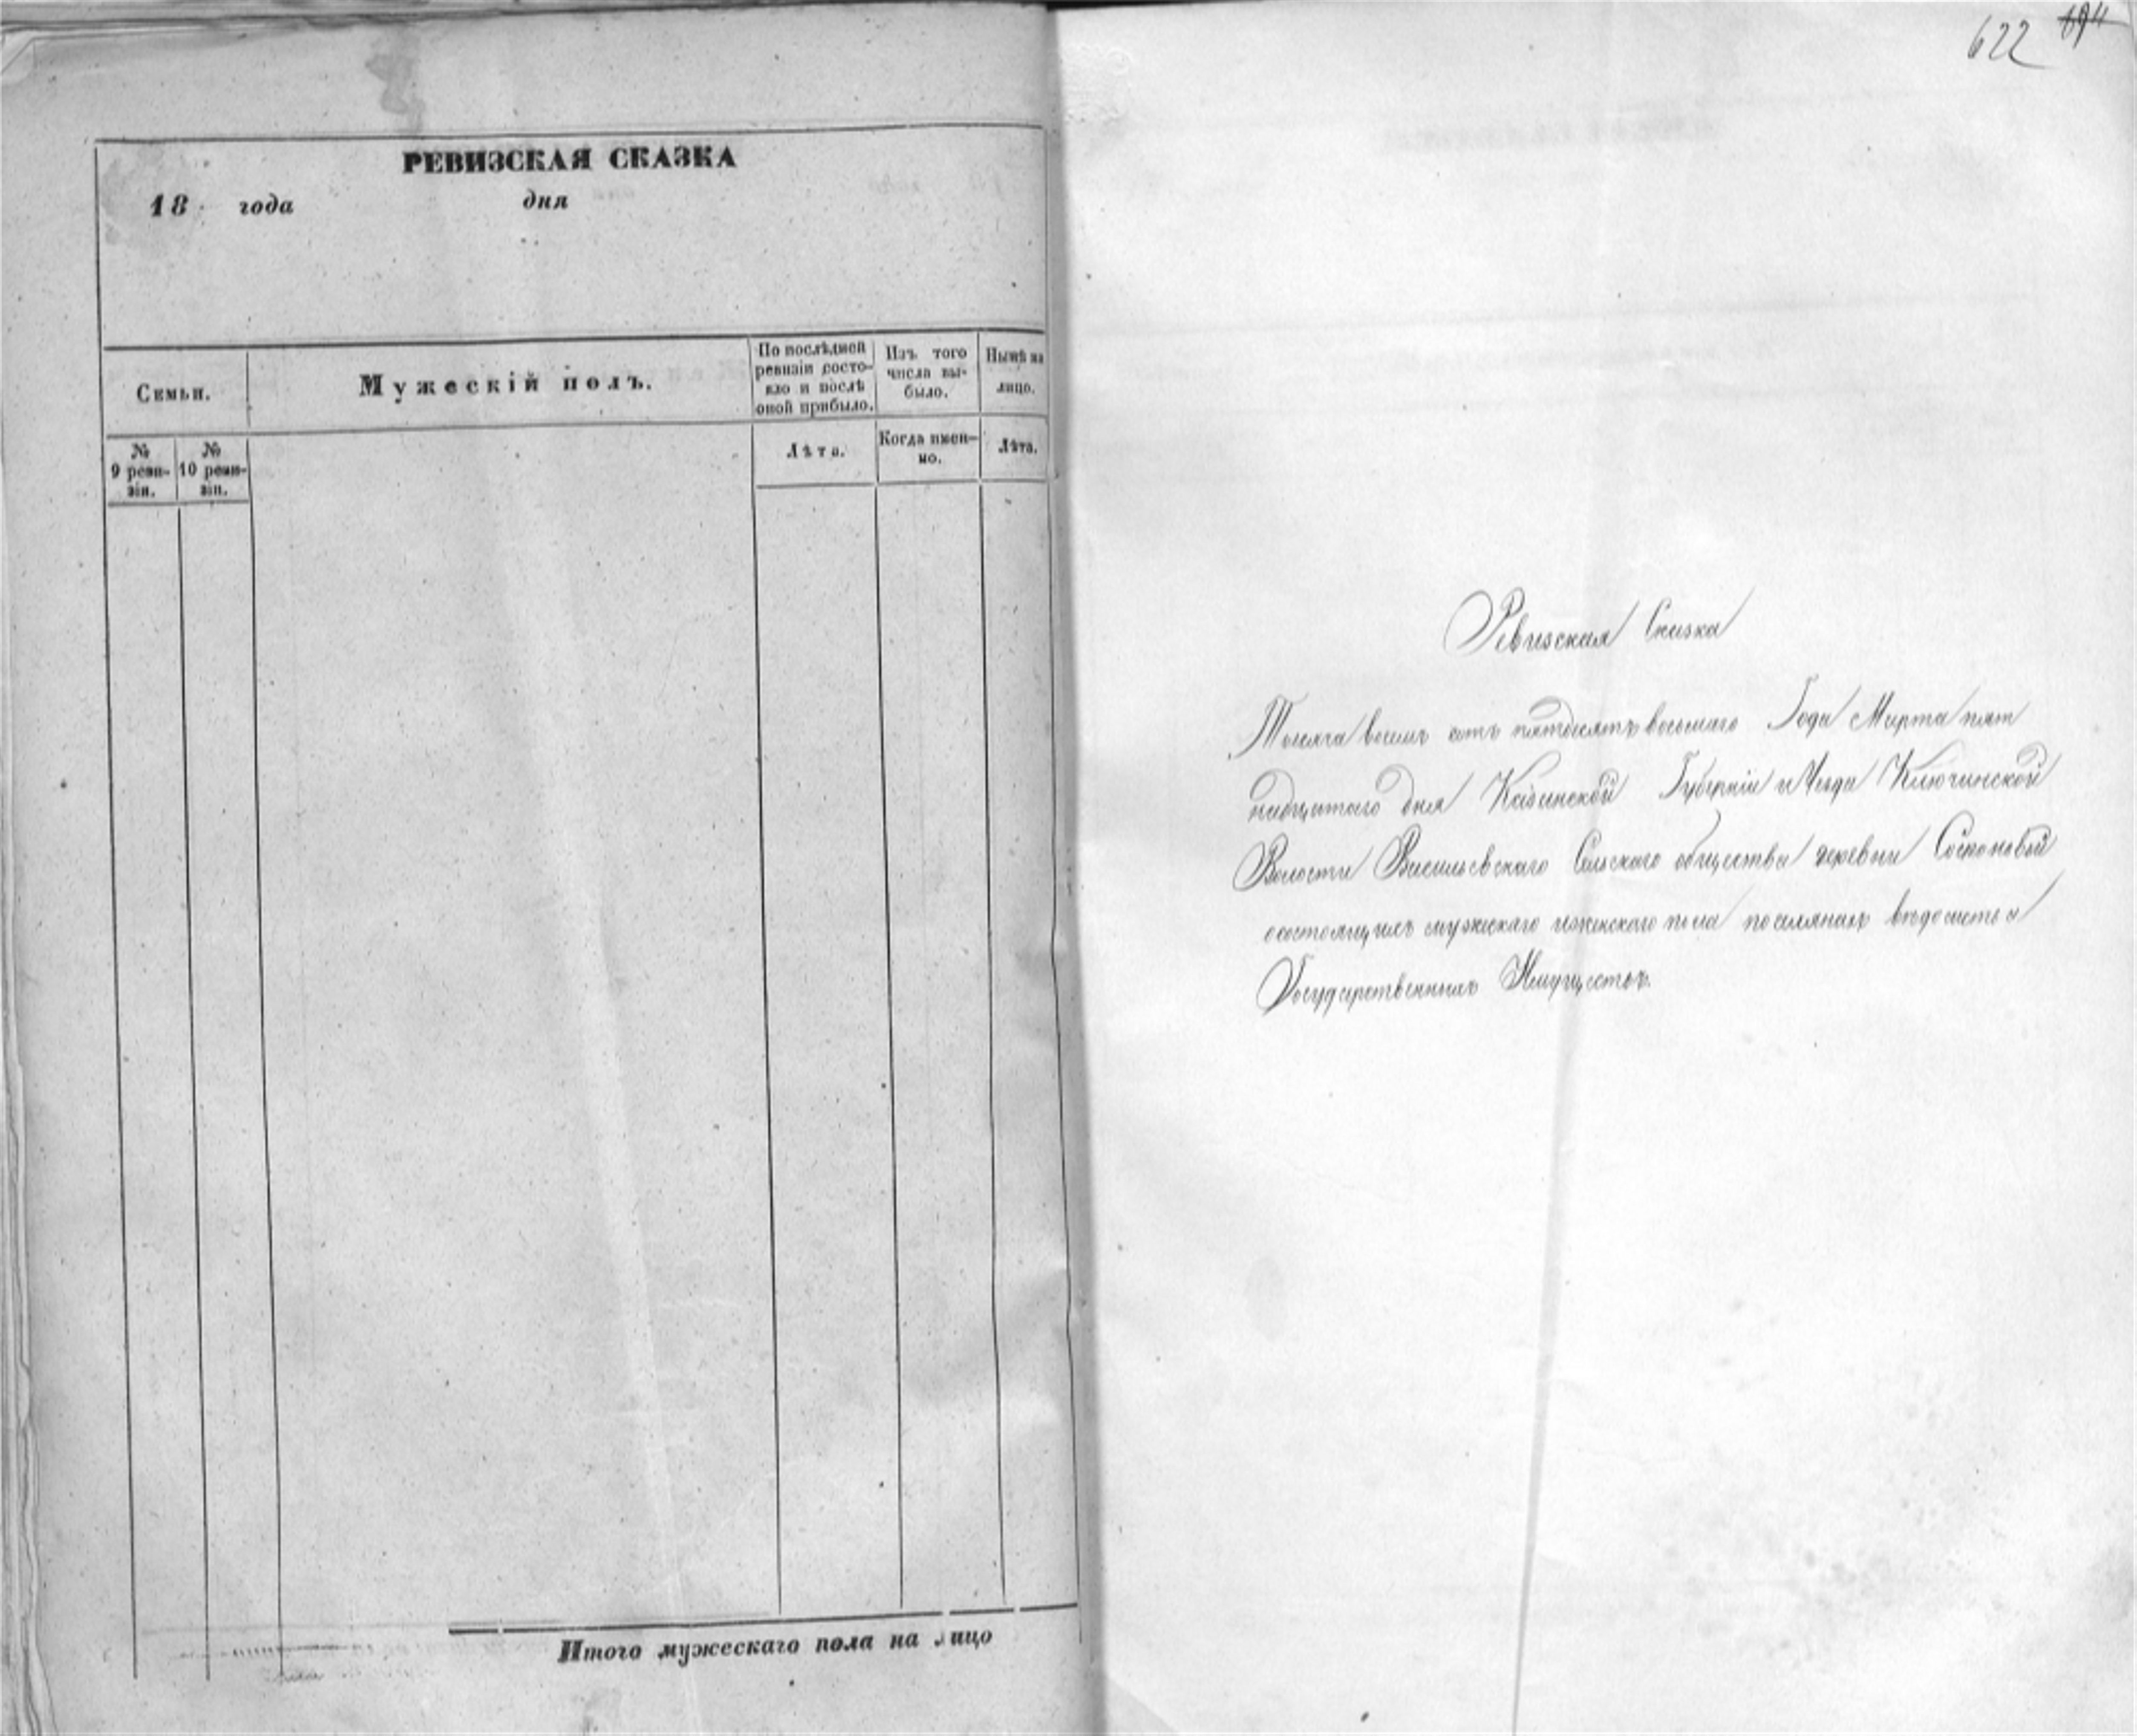 РЕВИЗСКАЯ СКАЗКА
18 года дня
Семьи.
Мужескій полъ.
По послѣдней ревизіи состояло и послѣ оной прибыло.
Изъ того числа выбыло.
Нынѣ на лицо.
№ 9 ревизіи.
№ 10 ревизіи.
Лѣта.
Когда именно.
Лѣта.
Итого мужескаго пола на лицо
622
Ревизская Сказка
Тысяча восемь сотъ пятдесятъ восьмаго Года Марта пят
надцатаго дня Губерніи и Уезда Ключинской
Волости Васильевскаго Сельскаго общества деревни
о состоящихъ мужескаго и женскаго пола поселянахъ вѣдомства
Государственныхъ Имуществъ.